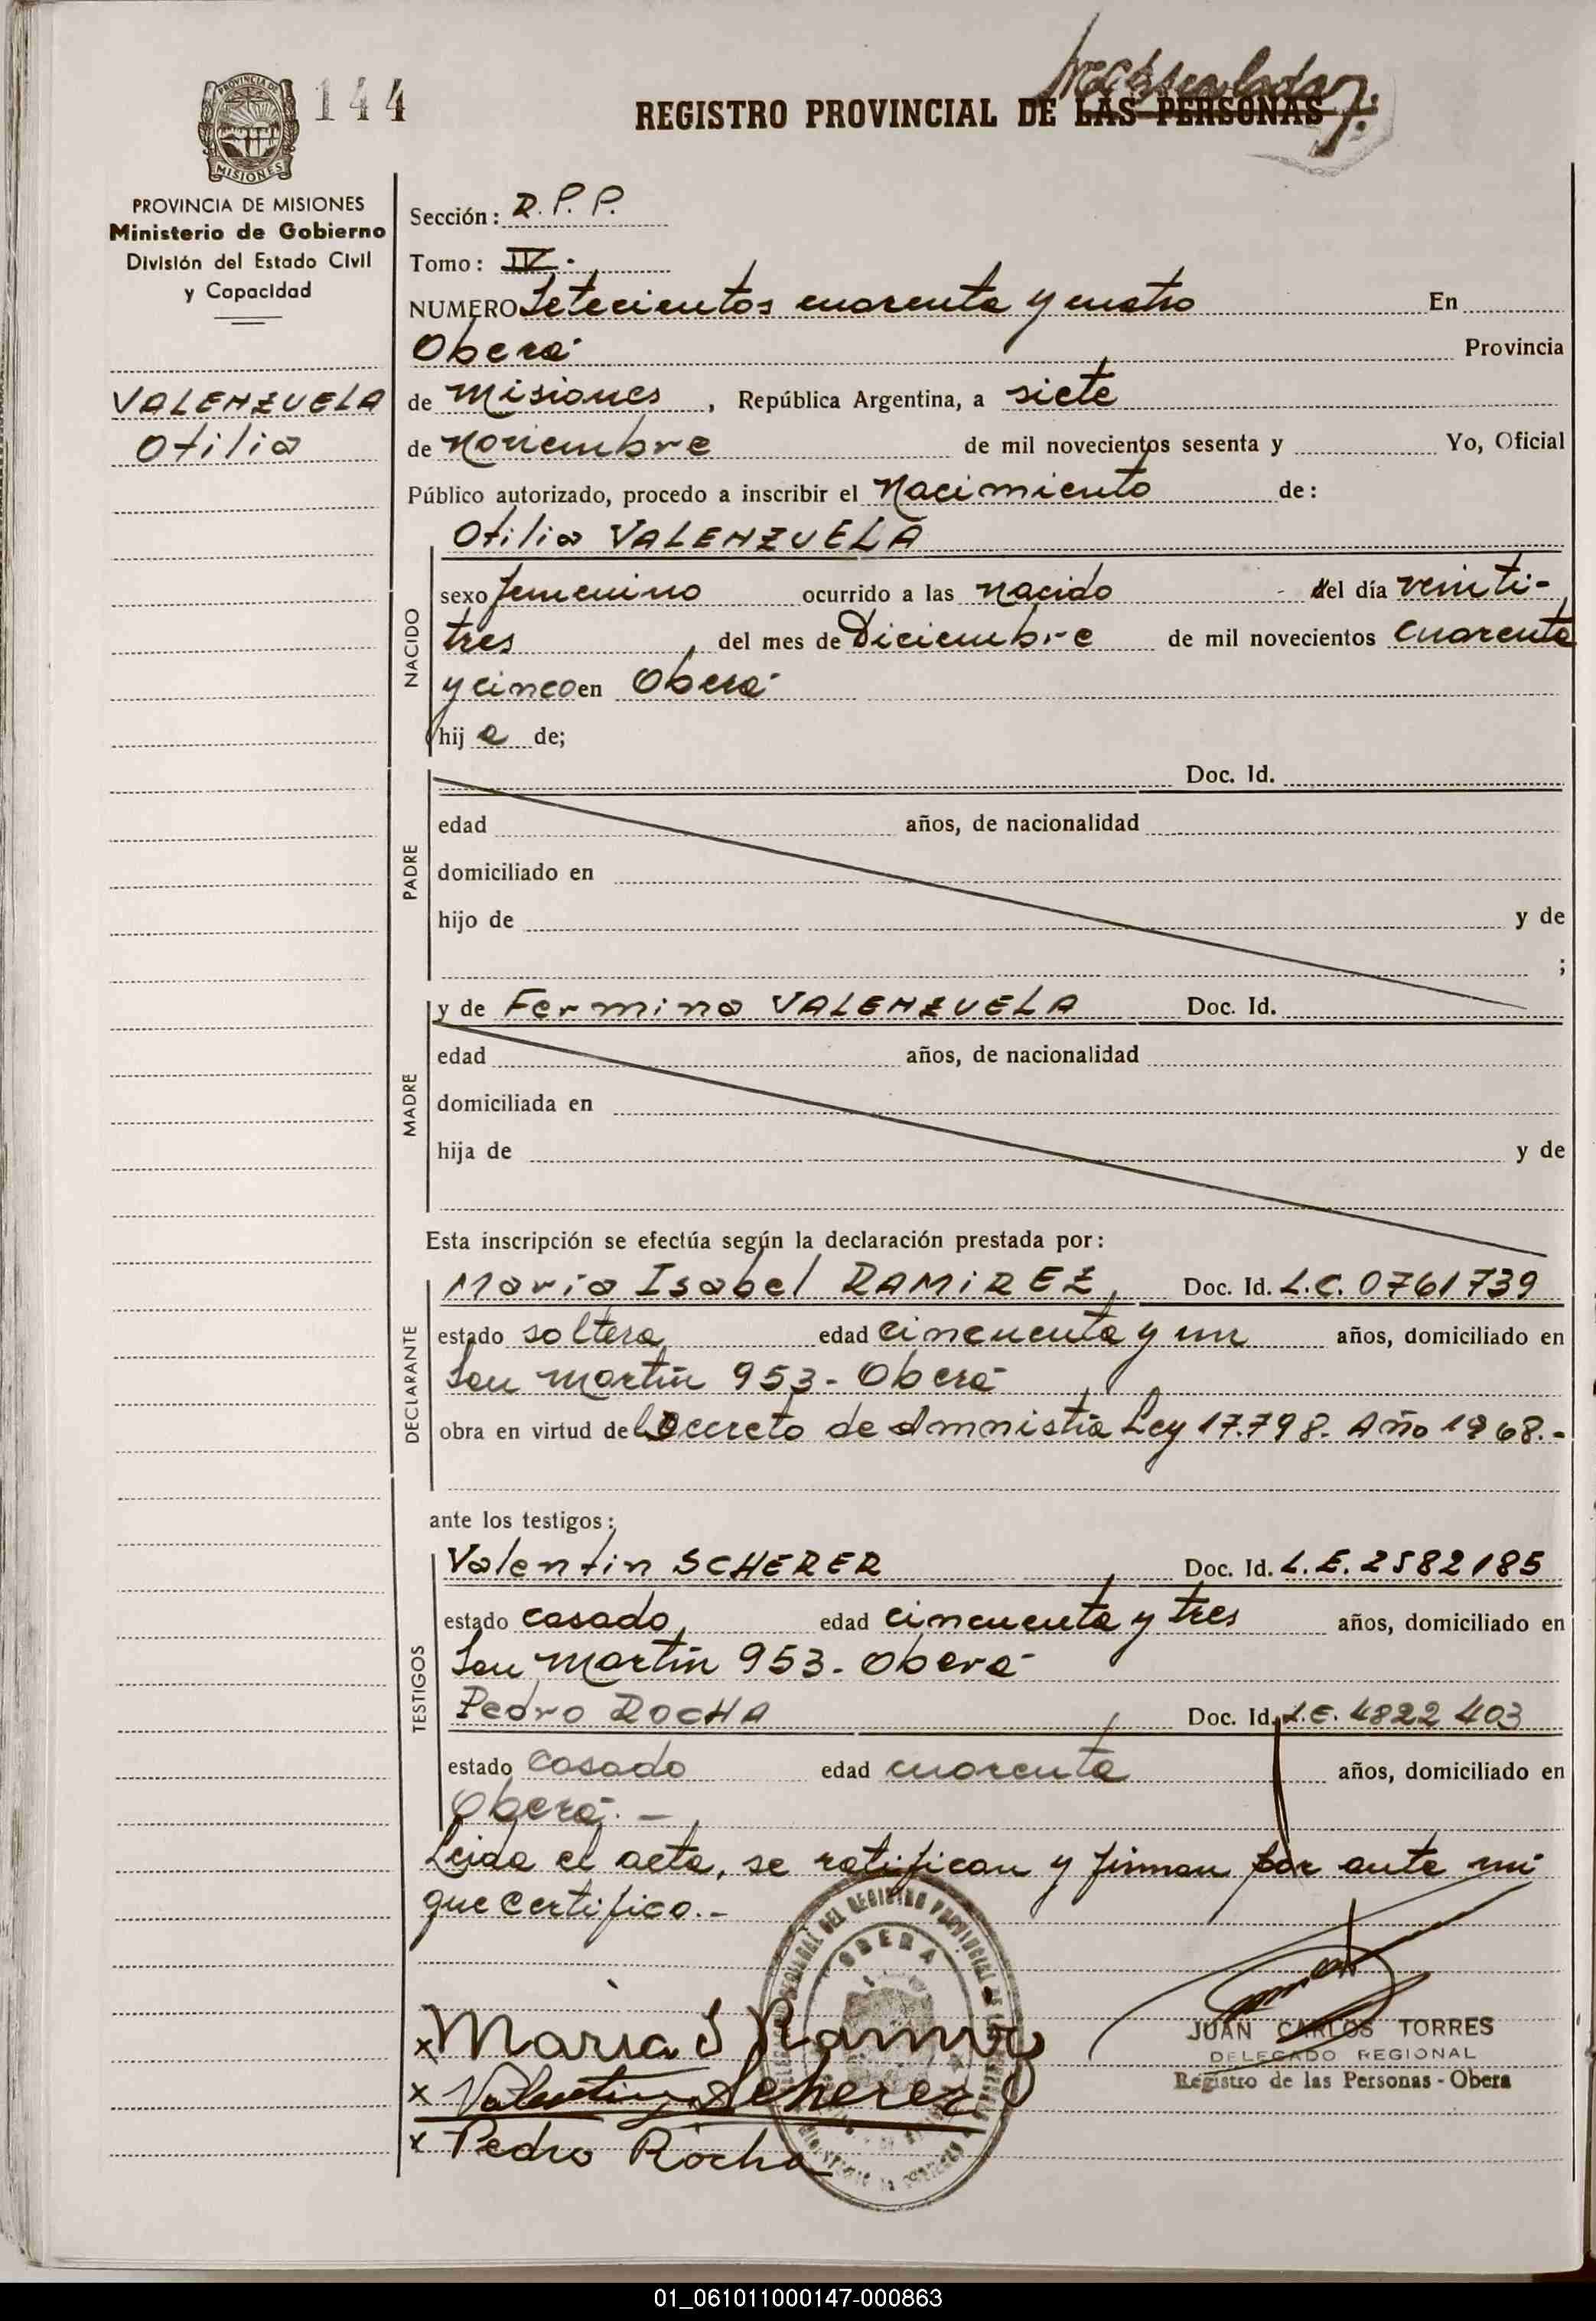 PROVINCIA DE
MISIONES
144
REGISTRO PROVINCIAL DE LAS PERSONAS
PROVINCIA DE MISIONES
Ministerio de Gobierno
División del Estado Civil
y Capacidad
VALENZUELA
Otilia
Sección: R. P. P.
Tomo: IV.
NUMERO Setecientos cuarenta y cuatro En
Oberá Provincia
de Misiones, República Argentina, a siete
de Noviembre de mil novecientos sesenta y Yo, Oficial
Público autorizado, procedo a inscribir el Nacimiento de:
Otilia VALENZUELA
NACIDO
sexo femenino ocurrido a las nacido del día veinti-
tres del mes de Diciembre de mil novecientos cuarenta
y cinco en Oberá
hij a de;
PADRE
Doc. Id.
edad años, de nacionalidad
domiciliado en
hijo de y de
;
MADRE
y de Fermina VALENZUELA Doc. Id.
edad años, de nacionalidad
domiciliada en
hija de y de
Esta inscripción se efectúa según la declaración prestada por:
DECLARANTE
Maria Isabel RAMIREZ, Doc. Id. L.C. 0761739
estado soltera edad cincuenta y un años, domiciliado en
San Martín 953 - Oberá
obra en virtud del Decreto de Amnistía Ley 17.798. Año 1968.-
ante los testigos:
TESTIGOS
Valentin SCHERER Doc. Id. L.E. 2582185
estado casado, edad cincuenta y tres años, domiciliado en
San Martín 953 - Oberá
Pedro ROCHA Doc. Id. L.E. 4822403
estado casado edad cuarenta años, domiciliado en
Oberá. -
Leida el acta, se ratifican y firman por ante mi
que certifico.-
OBERA
x Maria I Ramirez
x Valentin Scherer
x Pedro Rocha
JUAN CARLOS TORRES
DELEGADO REGIONAL
Registro de las Personas - Obera
01_061011000147-000863